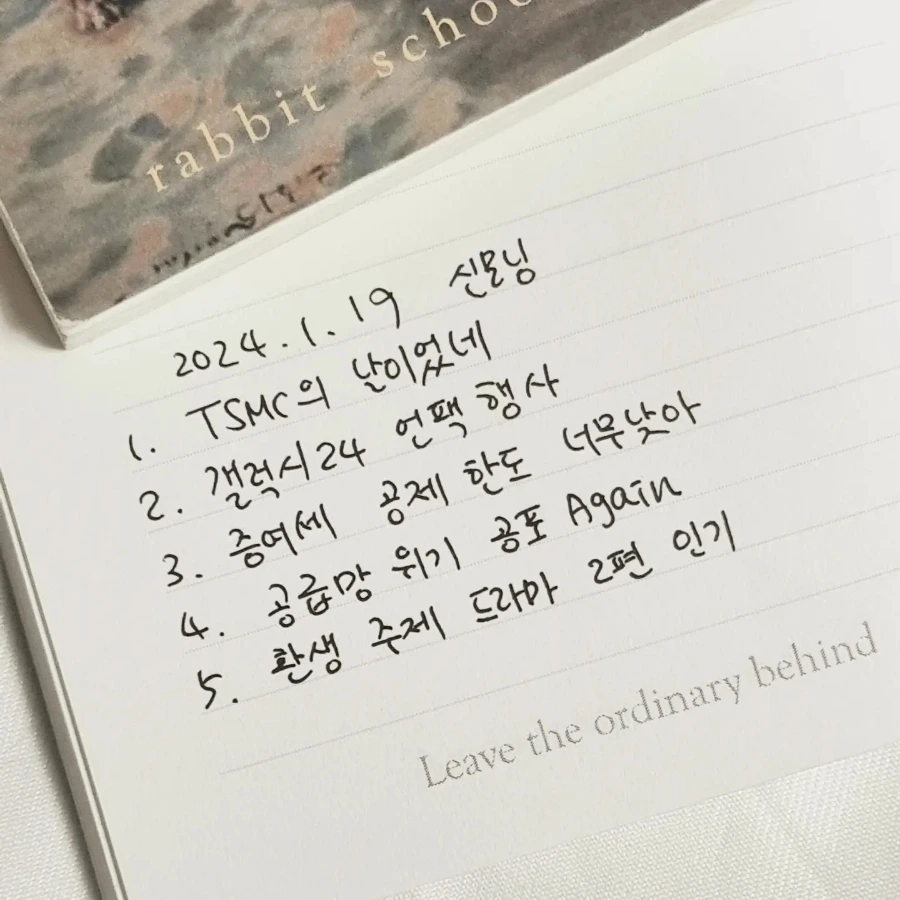 rabbit schoo
2024.1.19 신모닝
1. TSMC의 날이었네
2. 갤럭시24 언팩 행사
3. 증여세 공제 한도 너무낮아
4. 공급망 위기 공포 Again
5. 환생 주제 드라마 2편 인기
Leave the ordinary behind